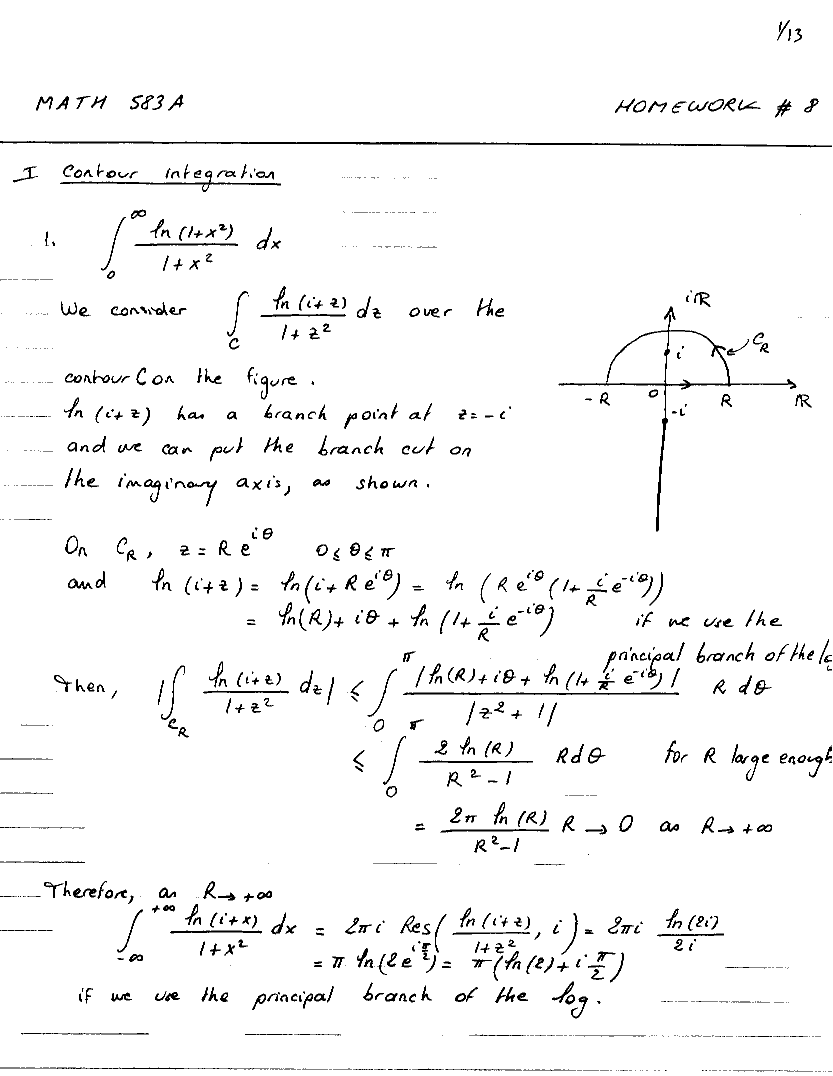 1/13
MATH 583A HOMEWORK # 8
I Contour integration
1. ∫_0^∞ ln(1+x²)/(1+x²) dx
We consider ∫_C ln(i+z)/(1+z²) dz over the
contour C on the figure.
ln(i+z) has a branch point at z=-i
and we can put the branch cut on
the imaginary axis, as shown.
iR
C_R
i
-R 0 R R
-i
On C_R, z = R e^{iθ} 0≤θ≤π
and ln(i+z) = ln(i+R e^{iθ}) = ln(R e^{iθ}(1+ i/R e^{-iθ}))
= ln(R)+iθ+ln(1+ i/R e^{-iθ}) if we use the
principal branch of the lo
Then, |∫_{C_R} ln(i+z)/(1+z²) dz| ≤ ∫_0^π |ln(R)+iθ+ln(1+ i/R e^{-iθ})|/|z²+1| R dθ
≤ ∫_0^π 2 ln(R)/(R²-1) R dθ for R large enough
= 2π ln(R)/(R²-1) R → 0 as R→+∞
Therefore, as R→+∞
∫_{-∞}^{+∞} ln(i+x)/(1+x²) dx = 2πi Res(ln(i+z)/(1+z²), i) = 2πi ln(2i)/2i
= π ln(2e^{iπ/2}) = π(ln(2)+i π/2)
if we use the principal branch of the log.